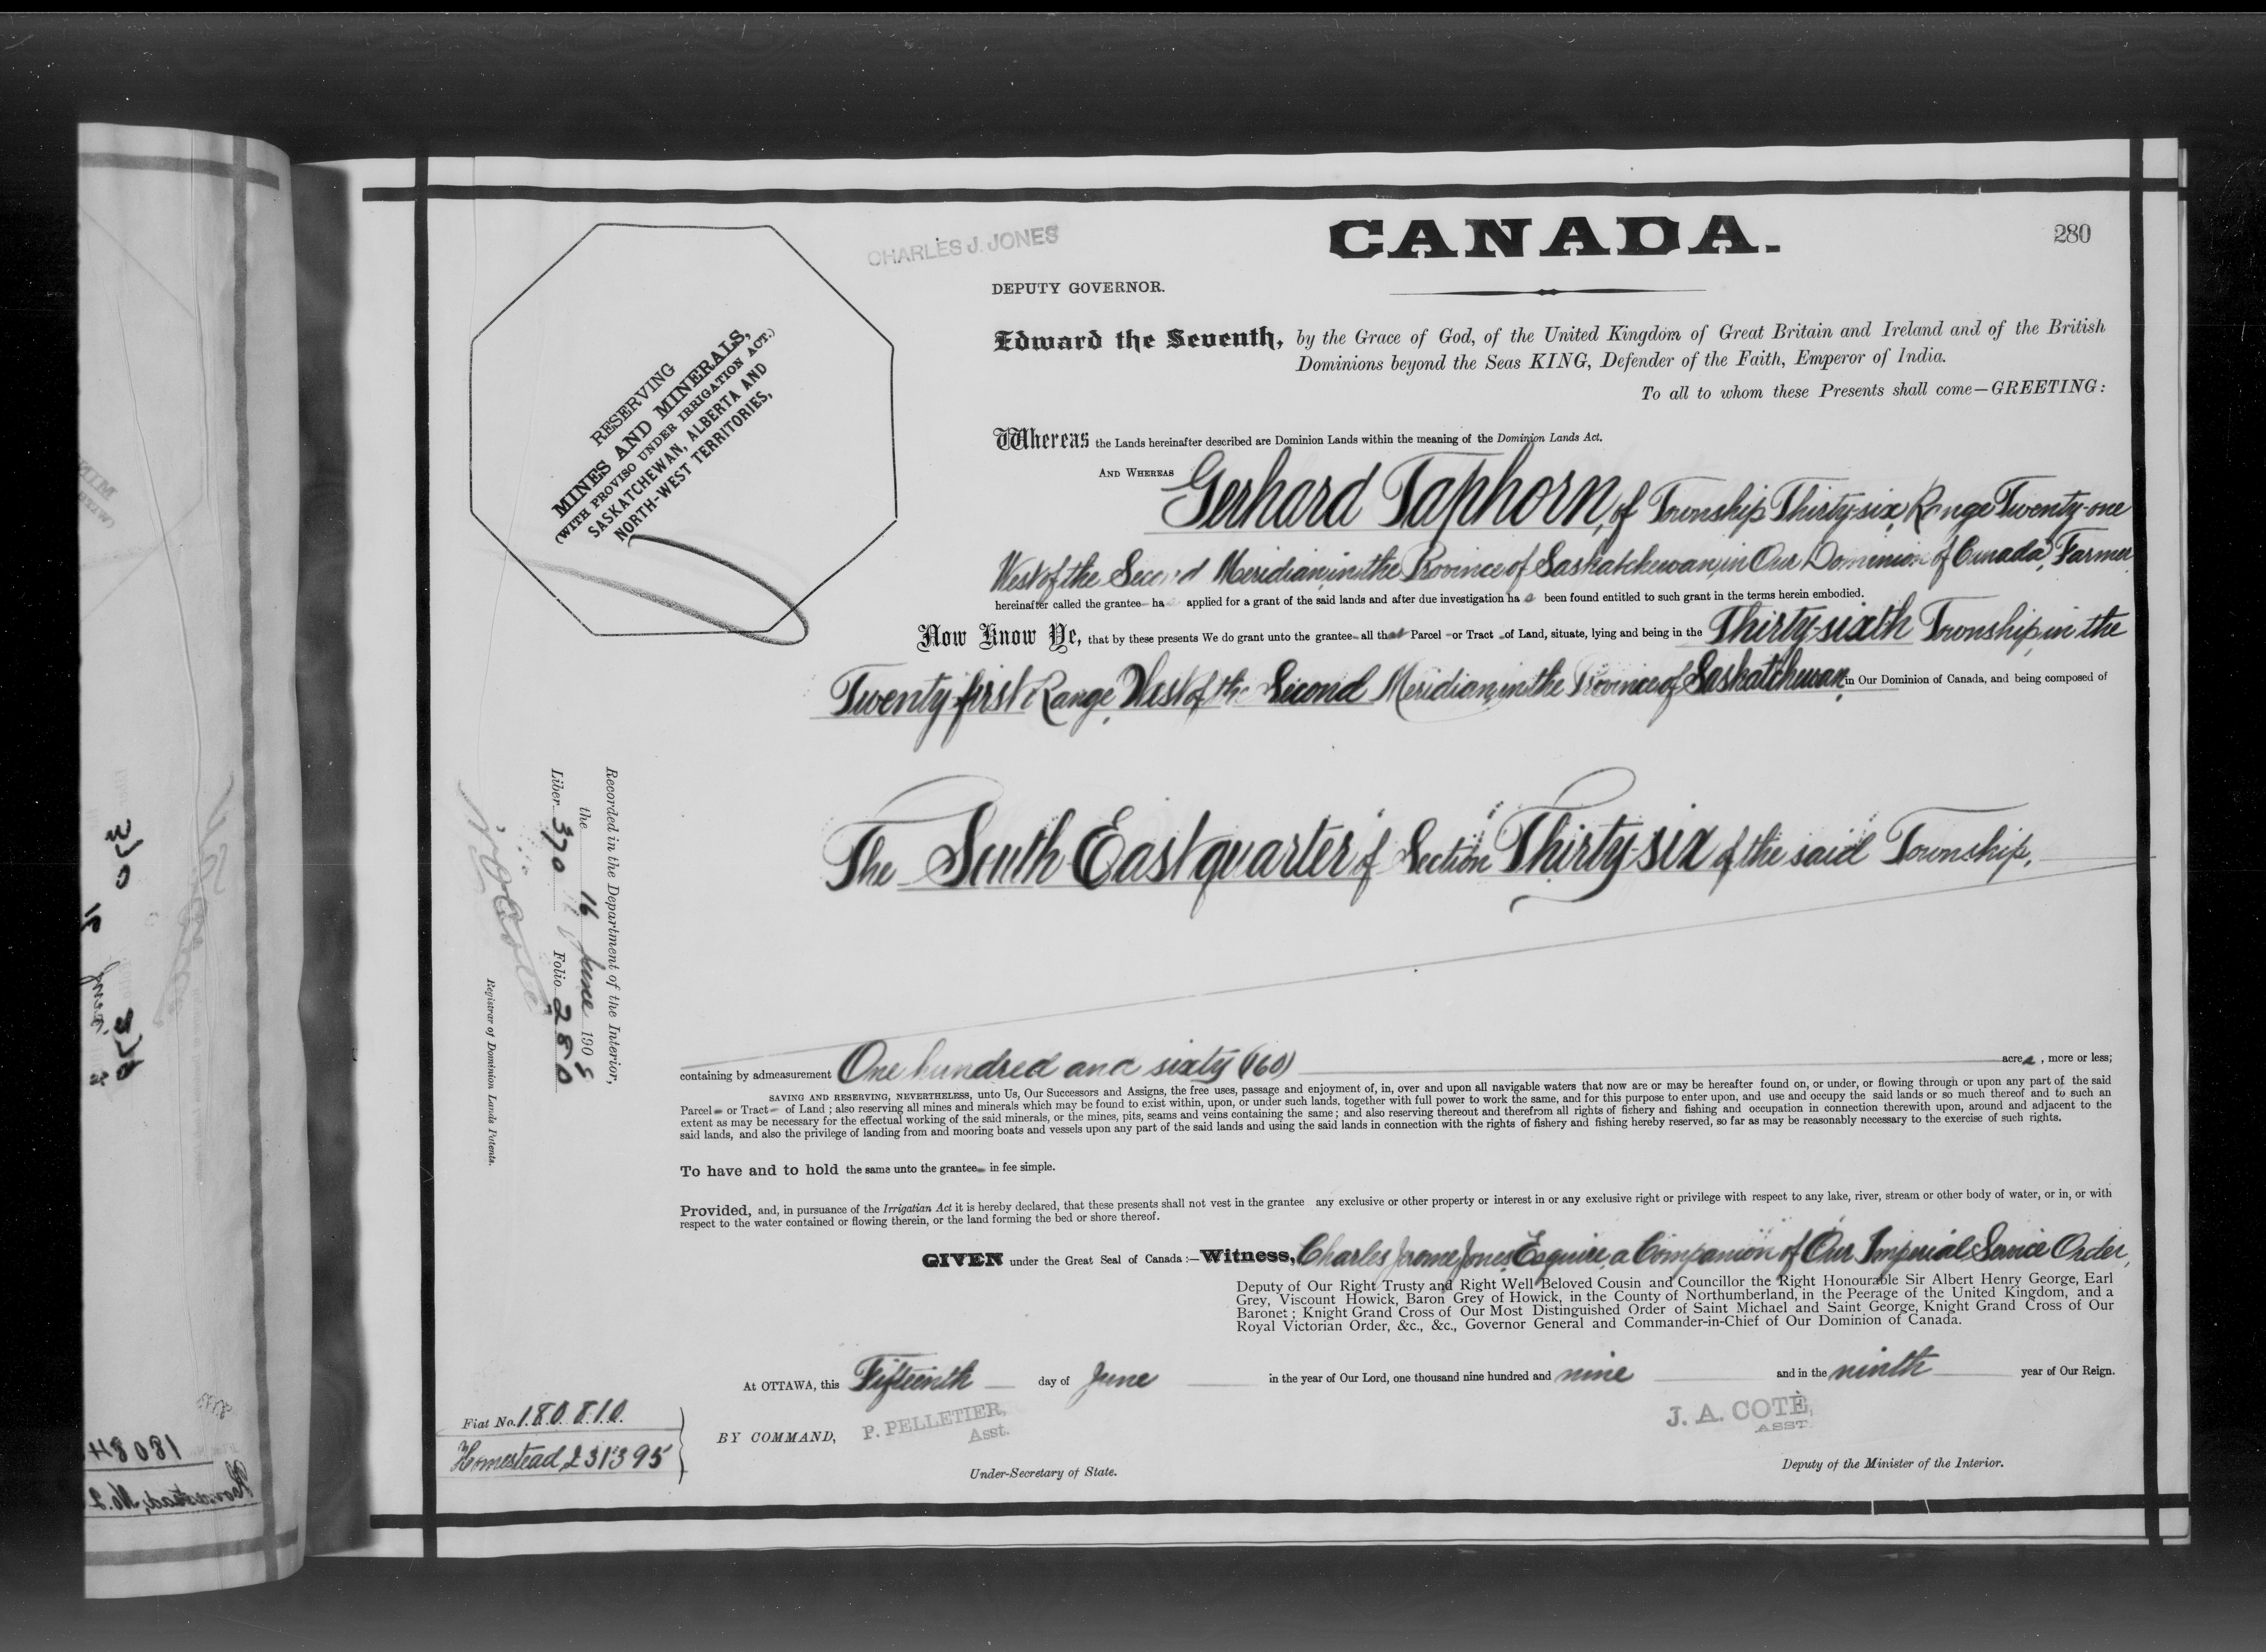 CANADA.
280
CHARLES J. JONES
DEPUTY GOVERNOR.
RESERVING
MINES AND MINERALS,
(WITH PROVISO UNDER IRRIGATION ACT.)
SASKATCHEWAN, ALBERTA AND
NORTH-WEST TERRITORIES,
Edward the Seventh, by the Grace of God, of the United Kingdom of Great Britain and Ireland and of the British
Dominions beyond the Seas KING, Defender of the Faith, Emperor of India.
To all to whom these Presents shall come—GREETING:
Whereas the Lands hereinafter described are Dominion Lands within the meaning of the Dominion Lands Act.
AND WHEREAS Gerhard Taphorn, of Township Thirty-six, Range Twenty-one
West of the Second Meridian, in the Province of Saskatchewan, in Our Dominion of Canada, Farmer
hereinafter called the grantee ha applied for a grant of the said lands and after due investigation ha s been found entitled to such grant in the terms herein embodied.
Now Know Ye, that by these presents We do grant unto the grantee all that Parcel or Tract of Land, situate, lying and being in the Thirty-sixth Township, in the
Twenty-first Range, West of the Second Meridian, in the Province of Saskatchewan, in Our Dominion of Canada, and being composed of
The South East quarter of Section Thirty-six of the said Township,
Recorded in the Department of the Interior,
the 16 June 190
Liber 370 Folio 280
Registrar of Dominion Lands Patents.
containing by admeasurement One hundred and sixty (160) acres, more or less;
SAVING AND RESERVING, NEVERTHELESS, unto Us, Our Successors and Assigns, the free uses, passage and enjoyment of, in, over and upon all navigable waters that now are or may be hereafter found on, or under, or flowing through or upon any part of the said
Parcel or Tract of Land; also reserving all mines and minerals which may be found to exist within, upon, or under such lands, together with full power to work the same, and for this purpose to enter upon, and use and occupy the said lands or so much thereof and to such an
extent as may be necessary for the effectual working of the said minerals, or the mines, pits, seams and veins containing the same; and also reserving thereout and therefrom all rights of fishery and fishing and occupation in connection therewith upon, around and adjacent to the
said lands, and also the privilege of landing from and mooring boats and vessels upon any part of the said lands and using the said lands in connection with the rights of fishery and fishing hereby reserved, so far as may be reasonably necessary to the exercise of such rights.
To have and to hold the same unto the grantee in fee simple.
Provided, and, in pursuance of the Irrigatian Act it is hereby declared, that these presents shall not vest in the grantee any exclusive or other property or interest in or any exclusive right or privilege with respect to any lake, river, stream or other body of water, or in, or with
respect to the water contained or flowing therein, or the land forming the bed or shore thereof.
GIVEN under the Great Seal of Canada:—Witness, Charles Jerome Jones, Esquire, a Companion of Our Imperial Service Order,
Deputy of Our Right Trusty and Right Well Beloved Cousin and Councillor the Right Honourable Sir Albert Henry George, Earl
Grey, Viscount Howick, Baron Grey of Howick, in the County of Northumberland, in the Peerage of the United Kingdom, and a
Baronet; Knight Grand Cross of Our Most Distinguished Order of Saint Michael and Saint George, Knight Grand Cross of Our
Royal Victorian Order, &c., &c., Governor General and Commander-in-Chief of Our Dominion of Canada.
At OTTAWA, this Fifteenth day of June in the year of Our Lord, one thousand nine hundred and nine and in the ninth year of Our Reign.
BY COMMAND,
P. PELLETIER,
Asst.
Under-Secretary of State.
J. A. COTÉ,
ASST
Deputy of the Minister of the Interior.
Fiat No. 180810
Homestead, 231395